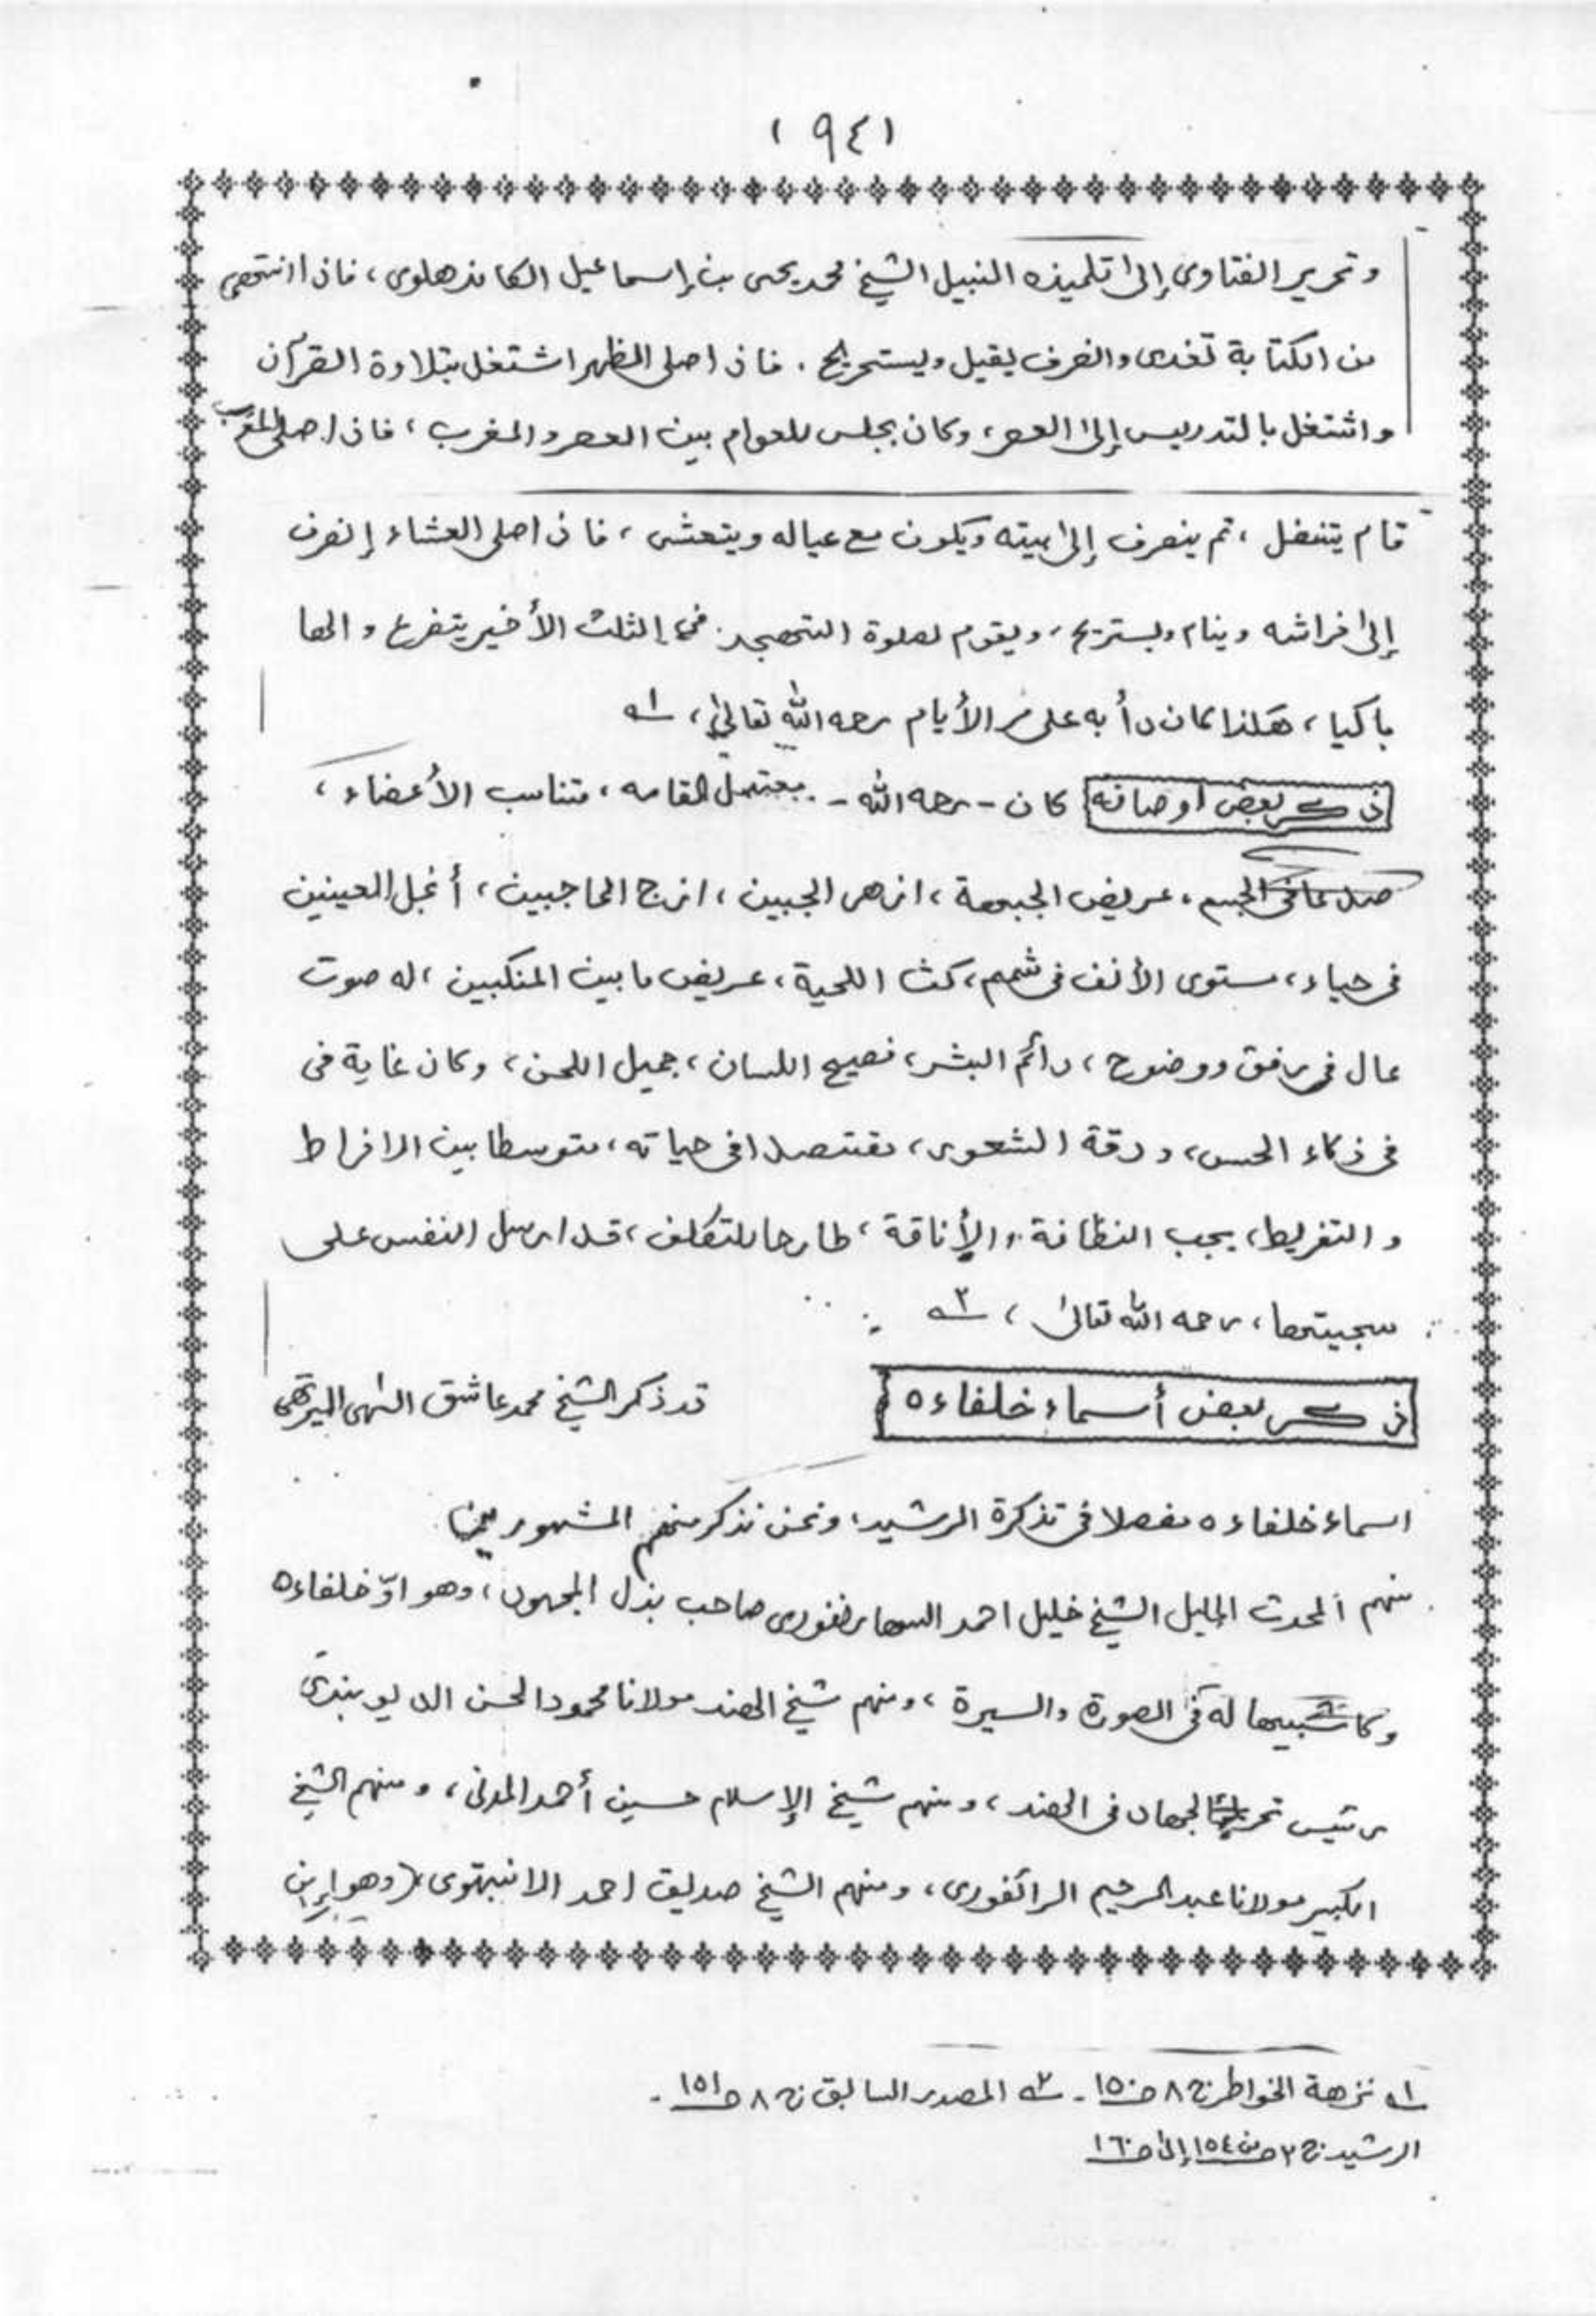 (٩٤)
وتحرير الفتاوى إلى تلميذه النبيل الشيخ محمد يحيى بن إسماعيل الكاندهلوى، فاذا انتهى
من الكتابة تغدى وانصرف يقيل ويستريح . فاذا صلى الظهر اشتغل بتلاوة القرآن
واشتغل بالتدريس إلى العصر، وكان يجلس للعوام بين العصر والمغرب، فاذا صلى المغرب
قام يتنفل، ثم ينصرف إلى بيته ويكون مع عياله ويتعشى، فاذا صلى العشاء إنصرف
إلى فراشه وينام ويستريح، ويقوم لصلوة التهجد فى الثلث الأخير يتضرع و
باكيا، هكذا كان دأبه على مر الأيام رحمه الله تعالى، ـ١ـه
ذكر بعض اوصافه كان - رحمه الله - معتدل القامه، متناسب الأعضاء،
الجسم، عريض الجبهة، ازهر الجبين، ازج الحاجبين، أنجل العينين
فى حياء، مستوى الأنف فى شمم، كث اللحية، عريض ما بين المنكبين، له صوت
عال فى رفق ووضوح، دائم البشر، فصيح اللسان، جميل اللحن، وكان غاية فى
فى ذكاء الحس، ودقة الشعور، مقتصدا فى حياته، متوسطا بين الافراط
والتفريط، يحب النظافة والأناقة، طارحا للتكلف، قد ارسل النفس على
سجيتها، رحمه الله تعالى، ـ٢ـه
ذكر بعض أسماء خلفاءه قد ذكر الشيخ محمد عاشق الهى الميرتهى
اسماء خلفاءه مفصلا فى تذكرة الرشيد، ونحن نذكر منهم المشهورين
منهم المحدث الجليل الشيخ خليل احمد السهارنفورى صاحب بذل المجهود، وهو اوّ خلفاءه
وكان شبيها له فى الصورة والسيرة، ومنهم شيخ الهند مولانا محمود الحسن الديوبندى
رئيس تحريك الجهاد فى الهند، ومنهم شيخ الإسلام حسين أحمد المدنى، ومنهم الشيخ
الكبير مولانا عبد الرحيم الرائفورى، ومنهم الشيخ صديق احمد الانبهتوى، (وهو ابن
ـ١ـه نزهة الخواطر ج ٨ ص ١٥٠ - ـ٢ـه المصدر السابق ج ٨ ص ١٥١ -
الرشيد ج ٢ من ص ١٥٤ إلى ص ١٦٠